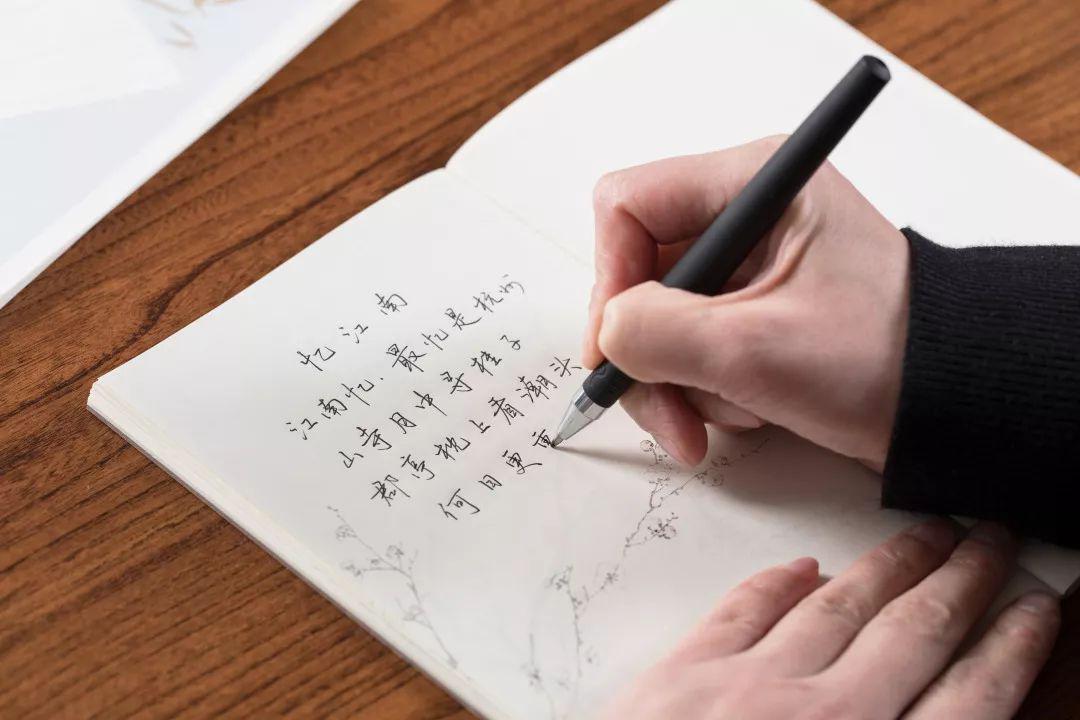 忆江南
江南忆,最忆是杭州
山寺月中寻桂子
郡亭枕上看潮头
何日更重